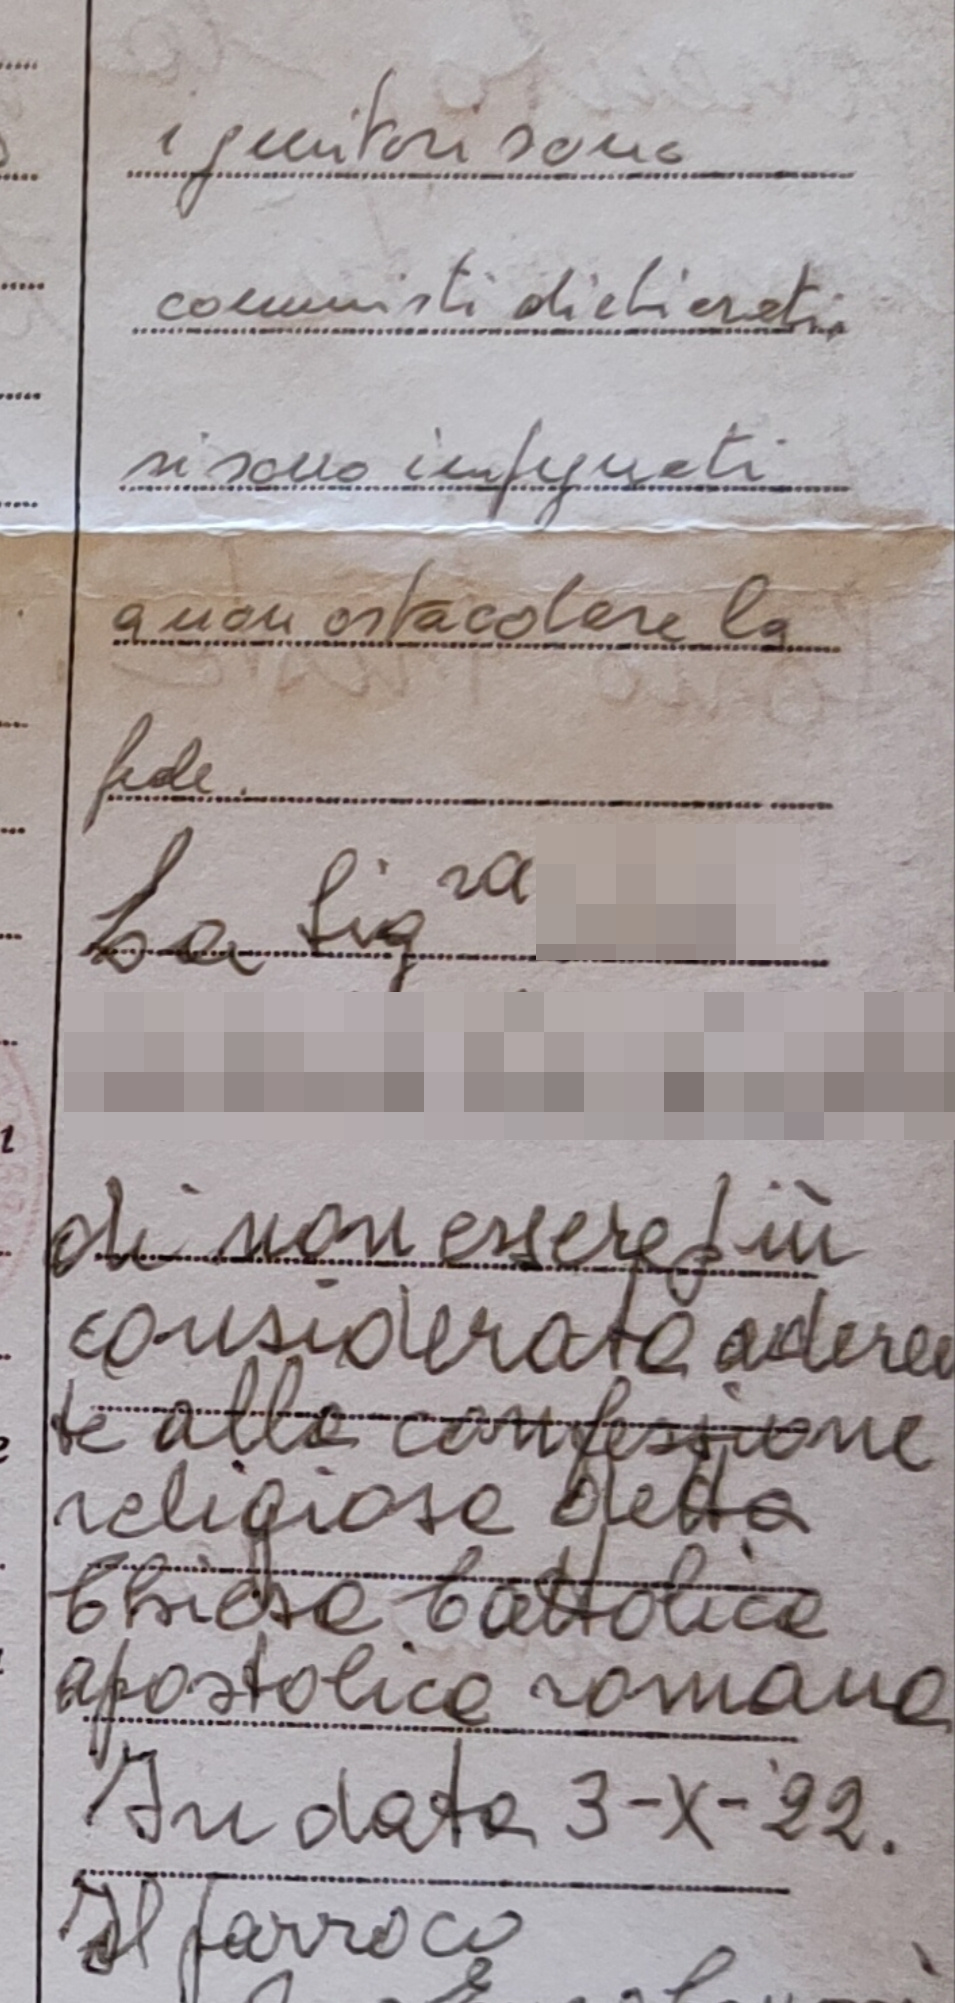 i genitori sono
comunisti dichiarati,
si sono impegnati
a non ostacolare la
fede.
La Sig ra
di non essere più
considerata aderen
te alla confessione
religiosa della
Chiesa Cattolica
apostolica romana
In data 3-X-'22.
Il parroco